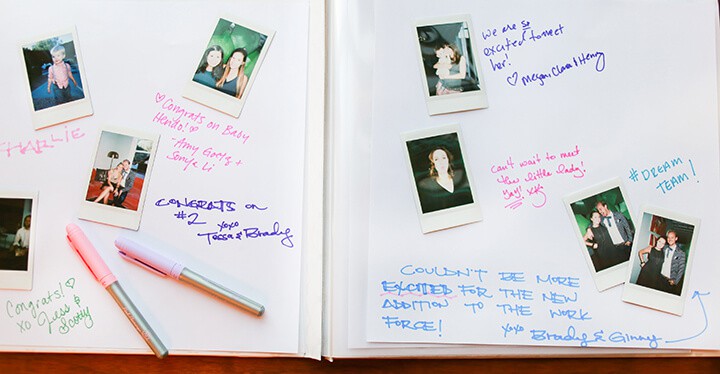 CHARLIE
♡Congrats on Baby
Henito!♡
-Amy Gortz +
Sonya Li
CONGRATS on
#2 xoxo
Tessa & Brady
Congrats!♡
xo Jess &
Scotty
we are so
excited to meet
her!
♡ Megan Clara & Henry
can't wait to meet
this little lady!
Yay!
#DREAM
TEAM!
COULDN'T BE MORE
EXCITED FOR THE NEW
ADDITION TO THE WORK
FORCE!
xoxo Brady & Ginny